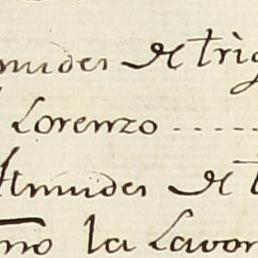 mudes de trig
Lorenzo ....
Almudes de t
mo la Lavor